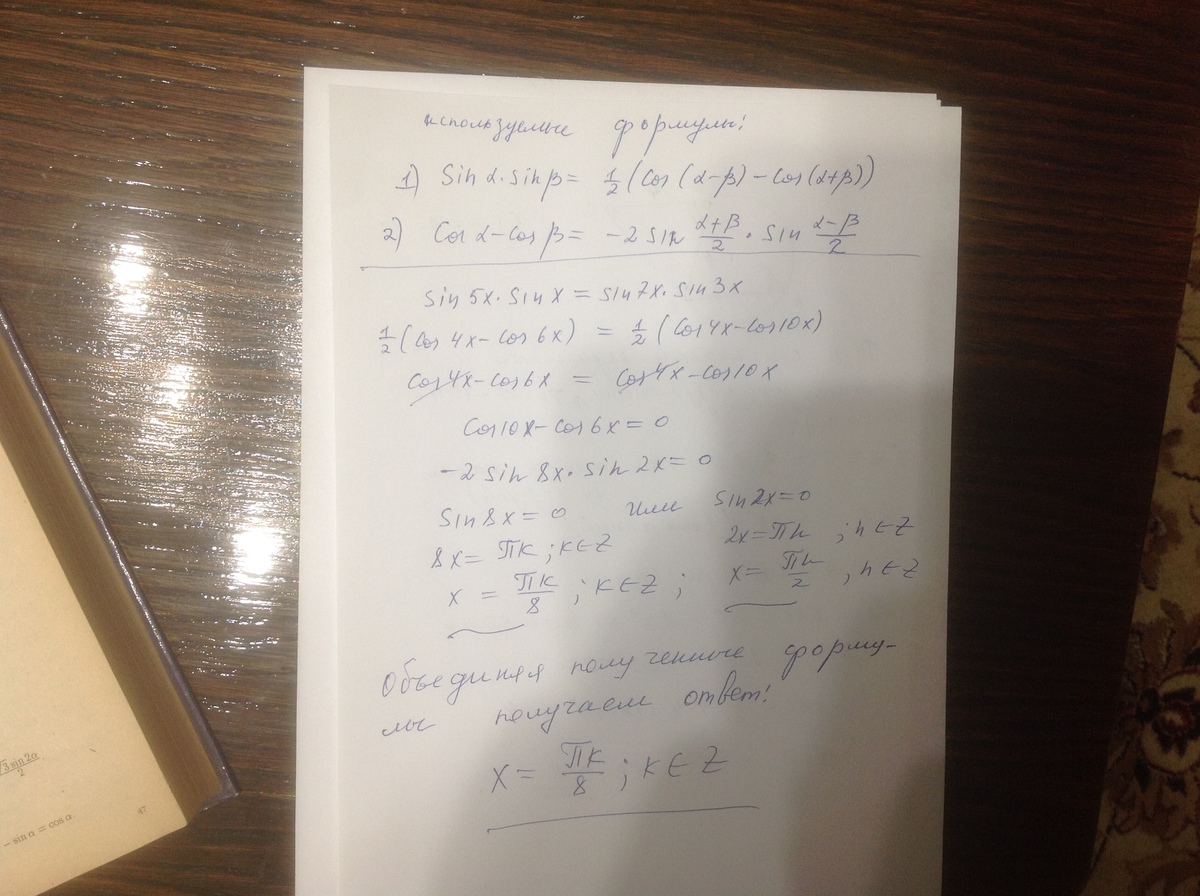 используемые формулы:
1) Sin α · sin β = 1/2 (Cos (α-β) - Cos (α+β))
2) Cos α - Cos β = -2 sin (α+β)/2 · sin (α-β)/2
sin 5x · sin x = sin 7x · sin 3x
1/2 (Cos 4x - cos 6x) = 1/2 (Cos 4x - cos 10x)
cos 4x - cos 6x = cos 4x - cos 10x
Cos 10x - cos 6x = 0
-2 sin 8x · sin 2x = 0
sin 8x = 0 или sin 2x = 0
8x = πк ; к ∈ Z 2x = πn ; n ∈ Z
x = πк/8 ; к ∈ Z ; x = πn/2 , n ∈ Z
Объединяя полученные форму-
лы получаем ответ:
x = πк/8 ; к ∈ Z
√3 sin 2α
2
- sin α = cos α.
47